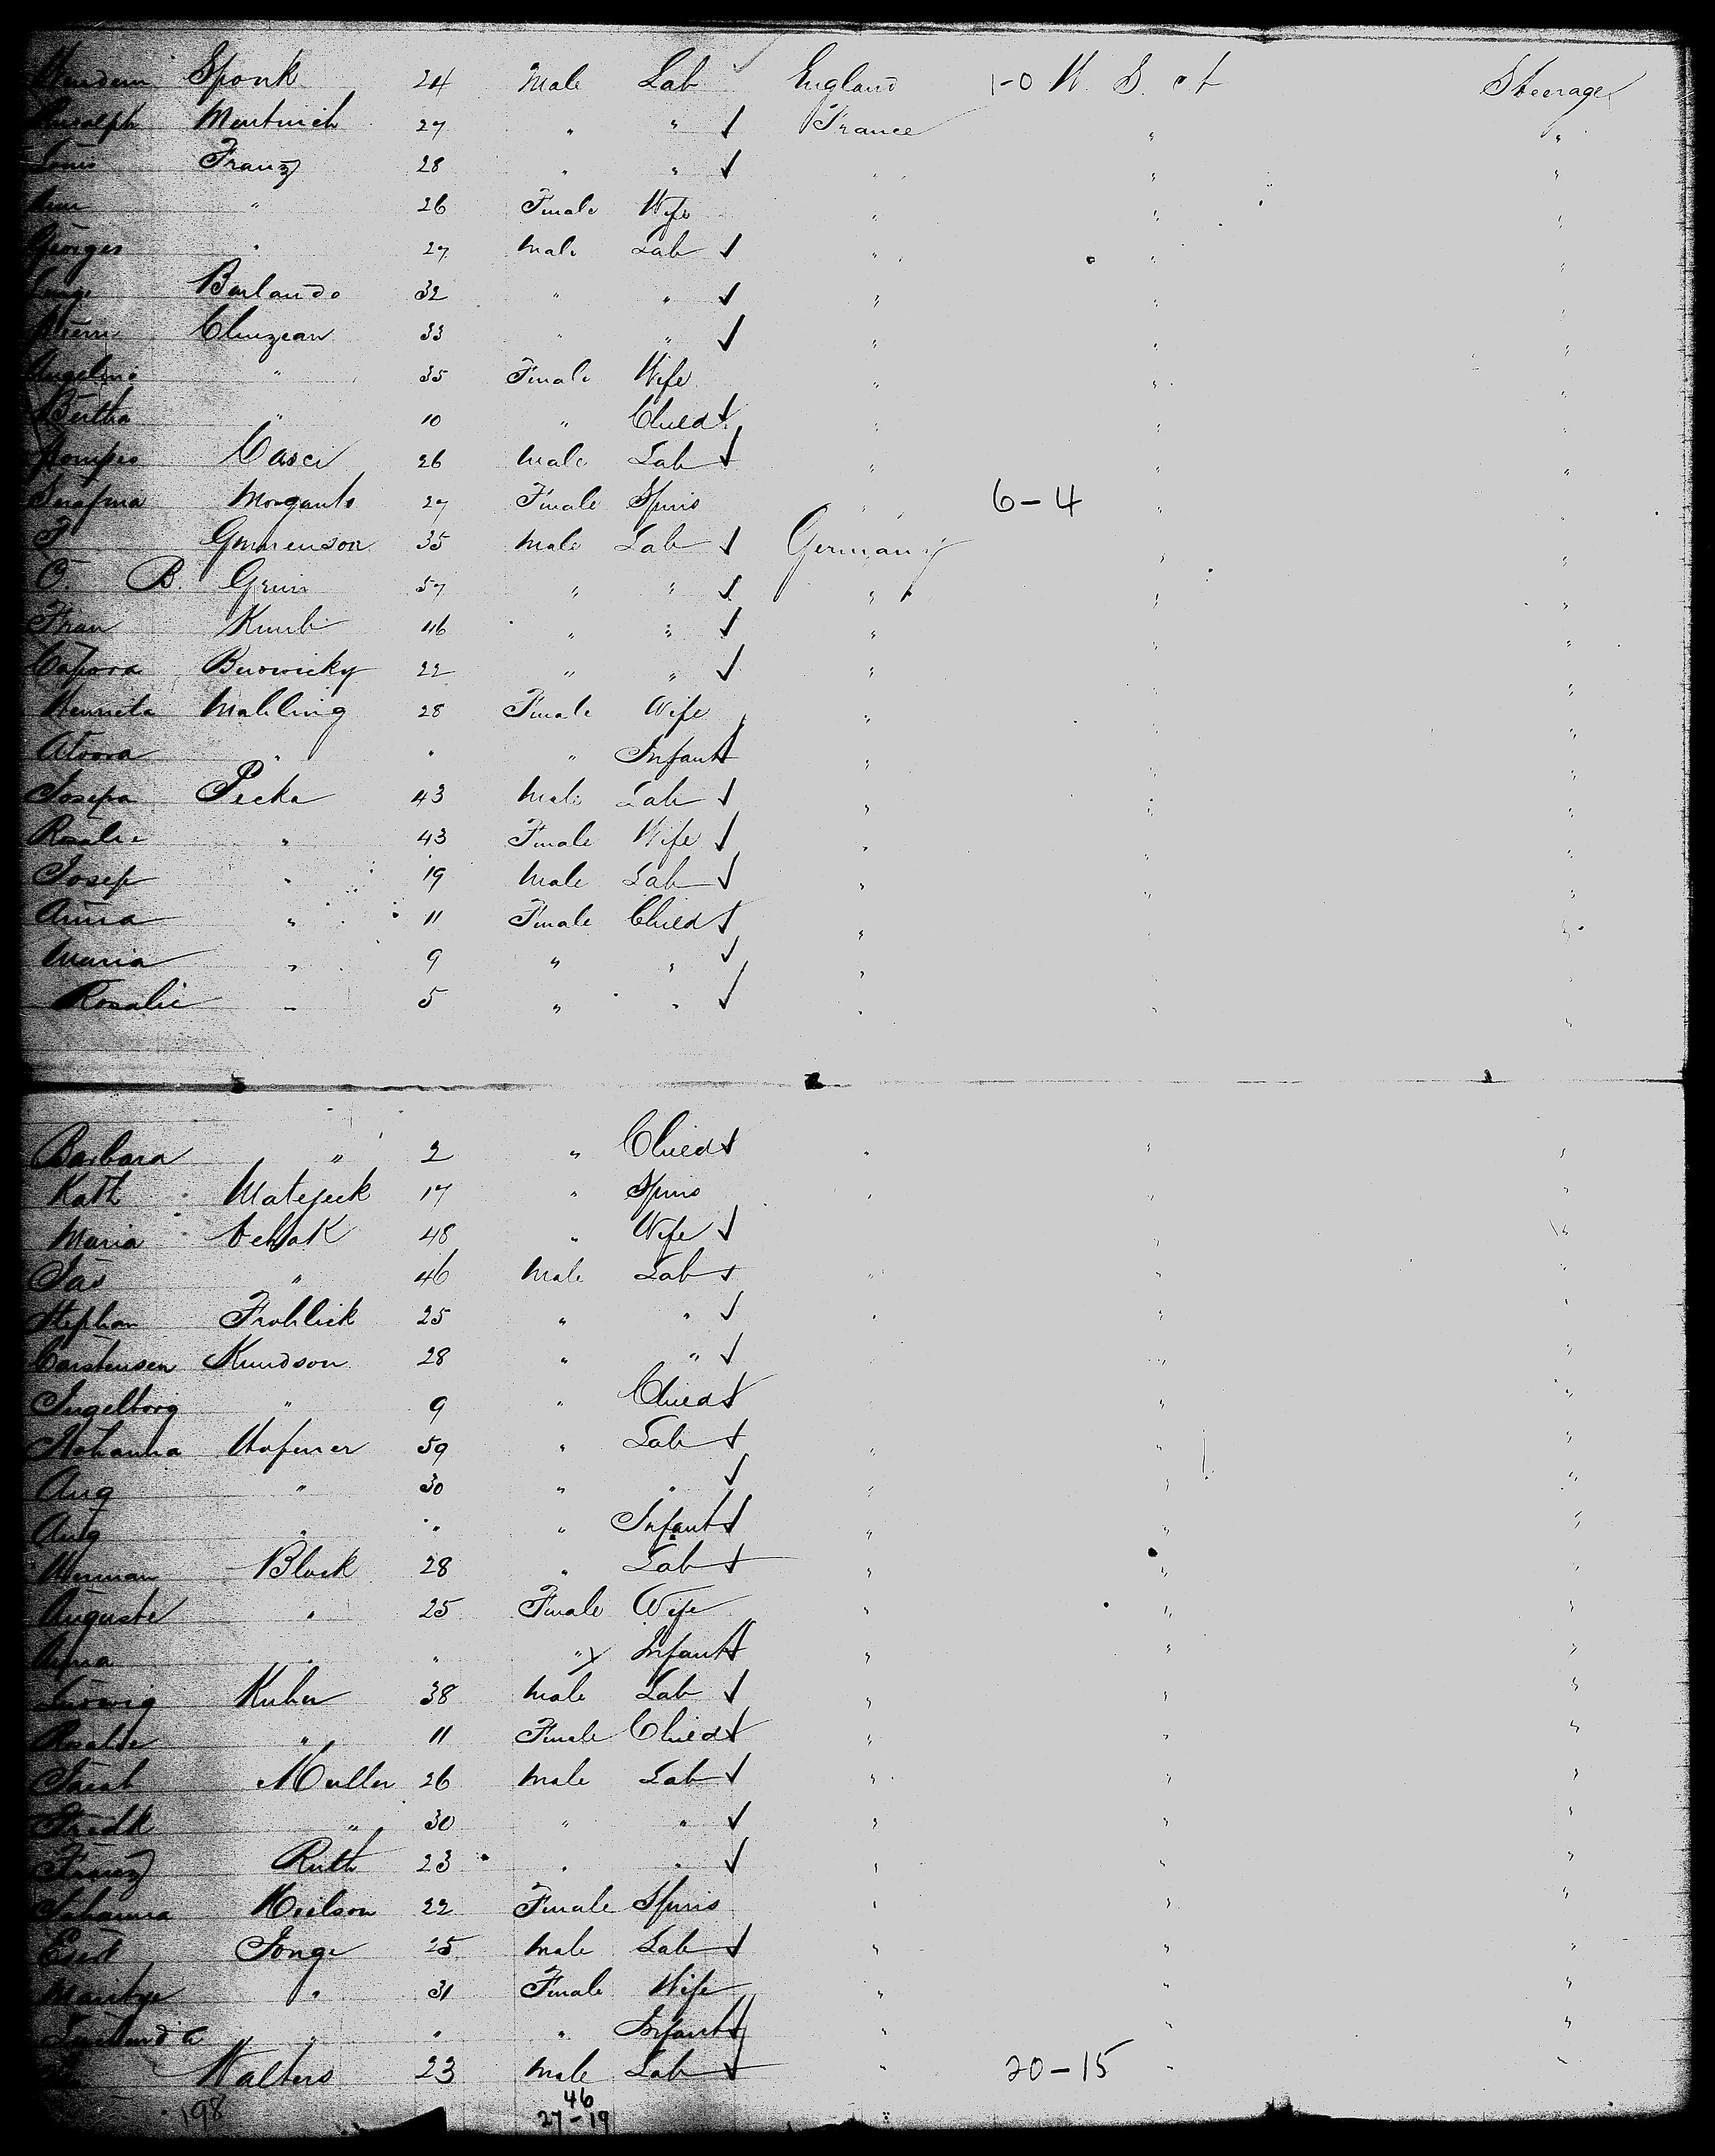 Sponk 24 Male Lab England 1-0 U. S. of Steerage
Rudolph 27 " " ✓ France " "
Louis Franz 28 " " ✓ " " "
" 26 Female Wife " " "
Georges " 27 Male Lab ✓ " " "
Barlando 32 " " ✓ " " "
33 " " ✓ " " "
Angelina " 35 Female Wife " " "
Bertha " 10 " Child ✓ " " "
Pompeo Casci 26 Male Lab ✓ " " "
Serafina Morganto 27 Female Spins " 6-4 " "
F 35 Male Lab ✓ Germany " "
O. B. Grun 57 " " ✓ " " "
Fran 46 " " ✓ " " "
22 " " ✓ " " "
Henrieta Mahling 28 Female Wife " " "
" " " Infant ✓ " " "
Josepa Pecka 43 Male Lab ✓ " " "
Rosalie " 43 Female Wife ✓ " " "
Josep " 19 Male Lab ✓ " " "
Anna " 11 Female Child ✓ " " "
Maria " 9 " " ✓ " " "
Rosalie " 5 " " ✓ " " "
Barbara " 2 " Child ✓ " " "
Kath Matejeck 17 " Spins " " "
Maria 48 " Wife ✓ " "
Jas " 46 Male Lab ✓ " " "
Stephan Frohlick 25 " " ✓ " " "
Carstensen Knudson 28 " " ✓ " "
Ingelborg " 9 " Child ✓ " "
Johanna Hafner 59 " Lab ✓ " " "
Aug " 30 " " ✓ " " "
Aug " " " Infant ✓ " " "
Herman Block 28 " Lab ✓ " " "
Auguste " 25 Female Wife " " "
Anna " " " Infant ✓ " " "
Ludwig Kuhn 38 Male Lab ✓ " " "
Rosalie " 11 Female Child ✓ " " "
Jacob Muller 26 Male Lab ✓ " " "
Fredk " 30 " " ✓ " " "
Franz Ruth 23 " " ✓ " " "
Johanna Neilson 22 Female Spins " " "
Evert Jonge 25 Male Lab ✓ " " "
Maritye " 31 Female Wife " " "
" " " Infant ✓ " " "
Walters 23 Male Lab ✓ " 20-15 " "
198 46
27-19